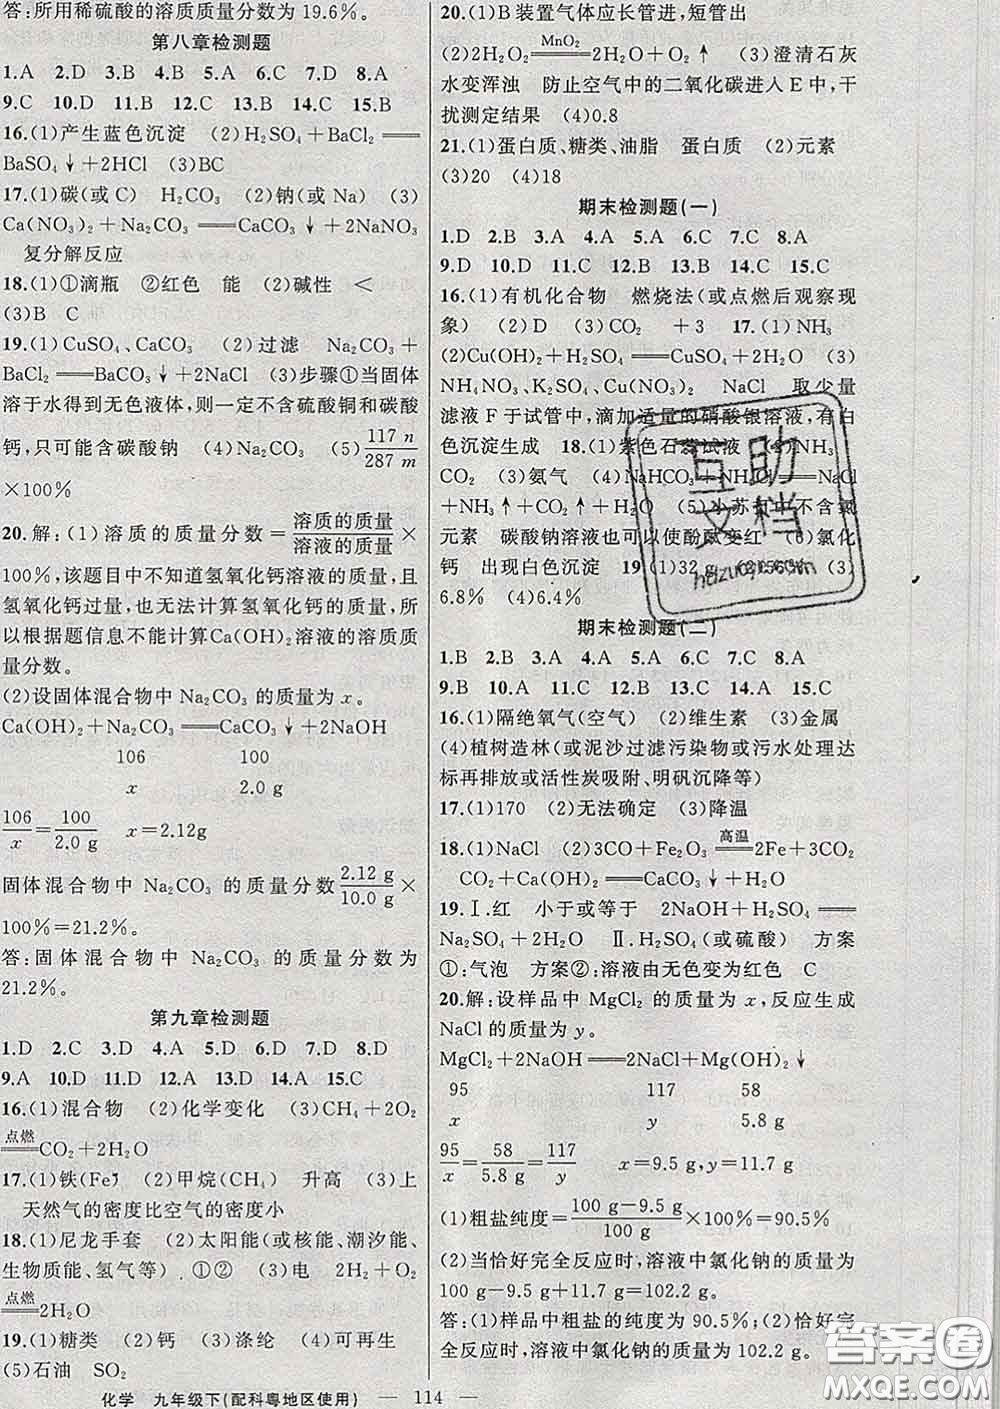 答:所用稀硫酸的溶质质量分数为19.6%。
第八章检测题
1.A 2.D 3.B 4.B 5.A 6.C 7.D 8.A
9.C 10.D 11.D 12.B 13.B 14.C 15.B
16.(1)产生蓝色沉淀 (2)H₂SO₄+BaCl₂══
BaSO₄↓+2HCl (3)BC
17.(1)碳(或C) H₂CO₃ (2)钠(或Na) (3)
Ca(NO₃)₂+Na₂CO₃══CaCO₃↓+2NaNO₃
复分解反应
18.(1)①滴瓶 ②红色 能 (2)碱性 <
(3)B C
19.(1)CuSO₄、CaCO₃ (2)过滤 Na₂CO₃+
BaCl₂══BaCO₃↓+2NaCl (3)步骤①当固体
溶于水得到无色液体,则一定不含硫酸铜和碳酸
钙,只可能含碳酸钠 (4)Na₂CO₃ (5)117 n/287 m
×100%
20.解:(1)溶质的质量分数=溶质的质量/溶液的质量×
100%,该题目中不知道氢氧化钙溶液的质量,且
氢氧化钙过量,也无法计算氢氧化钙的质量,所
以根据题信息不能计算Ca(OH)₂溶液的溶质质
量分数。
(2)设固体混合物中Na₂CO₃的质量为x。
Ca(OH)₂+Na₂CO₃══CaCO₃↓+2NaOH
106 100
x 2.0 g
106/x=100/2.0 g x=2.12g
固体混合物中Na₂CO₃的质量分数2.12 g/10.0 g×
100%=21.2%。
答:固体混合物中Na₂CO₃的质量分数为
21.2%。
第九章检测题
1.D 2.C 3.D 4.A 5.D 6.D 7.B 8.D
9.A 10.D 11.D 12.A 13.D 14.A 15.C
16.(1)混合物 (2)化学变化 (3)CH₄+2O₂
点燃══CO₂+2H₂O
17.(1)铁(Fe) (2)甲烷(CH₄) 升高 (3)上
天然气的密度比空气的密度小
18.(1)尼龙手套 (2)太阳能(或核能、潮汐能、
生物质能、氢气等) ①② (3)电 2H₂+O₂
点燃══2H₂O
19.(1)糖类 (2)钙 (3)涤纶 (4)可再生
(5)石油 SO₂
20.(1)B装置气体应长管进,短管出
(2)2H₂O₂ MnO₂══2H₂O+O₂↑ (3)澄清石灰
水变浑浊 防止空气中的二氧化碳进入E中,干
扰测定结果 (4)0.8
21.(1)蛋白质、糖类、油脂 蛋白质 (2)元素
(3)20 (4)18
期末检测题(一)
1.D 2.B 3.A 4.A 5.A 6.C 7.C 8.A
9.D 10.D 11.C 12.B 13.D 14.A 15.C
16.(1)有机化合物 燃烧法(或点燃后观察现
象) (2)D (3)CO₂ +3 17.(1)NH₃
(2)Cu(OH)₂+H₂SO₄══CuSO₄+2H₂O (3)
NH₄NO₃、K₂SO₄、Cu(NO₃)₂ NaCl 取少量
滤液F于试管中,滴加适量的硝酸银溶液,有白
色沉淀生成 18.(1)紫色石蕊试液 (2)NH₃
CO₂ (3)氨气 (4)NaHCO₃+NH₄Cl══NaCl
+NH₃↑+CO₂↑+H₂O (5)小苏打中不含氯
元素 碳酸钠溶液也可以使酚酞变红 (6)氯化
钙 出现白色沉淀 19.(1)32 g (3)
6.8% (4)6.4%
期末检测题(二)
1.B 2.B 3.A 4.A 5.A 6.C 7.C 8.A
9.B 10.A 11.C 12.C 13.C 14.A 15.C
16.(1)隔绝氧气(空气) (2)维生素 (3)金属
(4)植树造林(或泥沙过滤污染物或污水处理达
标再排放或活性炭吸附、明矾沉降等)
17.(1)170 (2)无法确定 (3)降温
18.(1)NaCl (2)3CO+Fe₂O₃高温══2Fe+3CO₂
CO₂+Ca(OH)₂══CaCO₃↓+H₂O
19.Ⅰ.红 小于或等于 2NaOH+H₂SO₄══
Na₂SO₄+2H₂O Ⅱ.H₂SO₄(或硫酸) 方案
①:气泡 方案②:溶液由无色变为红色 C
20.解:设样品中MgCl₂的质量为x,反应生成
NaCl的质量为y。
MgCl₂+2NaOH══2NaCl+Mg(OH)₂↓
95 117 58
x y 5.8 g
95/x=58/5.8 g=117/y x=9.5 g,y=11.7 g
(1)粗盐纯度=100 g-9.5 g/100 g×100%=90.5%
(2)当恰好完全反应时,溶液中氯化钠的质量为
100 g-9.5 g+11.7 g=102.2 g。
答:(1)样品中粗盐的纯度为90.5%;(2)恰好完
全反应时,溶液中氯化钠的质量为102.2 g。
化学 九年级下(配科粤地区使用) — 114 —
互助
文档
答案圈
MXQE.COM